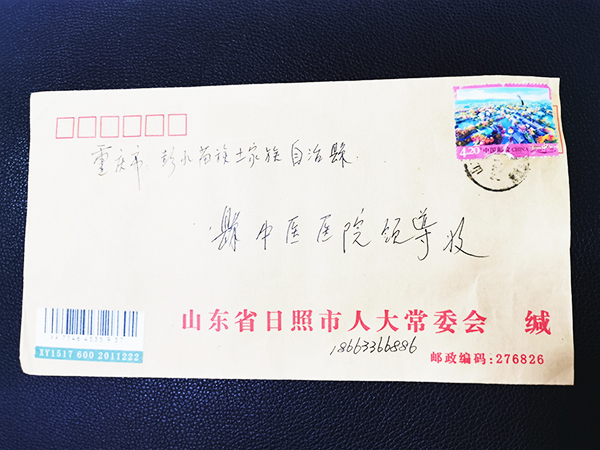 4.20元 中国邮政 CHINA
重庆市 彭水苗族土家族自治縣
縣中医医院领导收
山东省日照市人大常委会 缄
18663366886
邮政编码:276826
XY1517 600 2011222